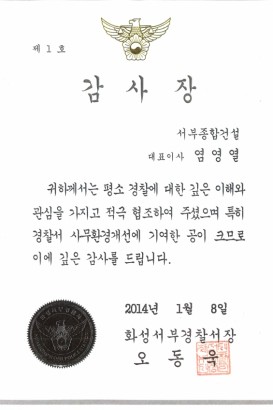 제 1 호
감 사 장
서부종합건설
대표이사 염영열
귀하께서는 평소 경찰에 대한 깊은 이해와
관심을 가지고 적극 협조하여 주셨으며 특히
경찰서 사무환경개선에 기여한 공이 크므로
이에 깊은 감사를 드립니다.
2014년 1월 8일
화성서부경찰서장
오 동 욱